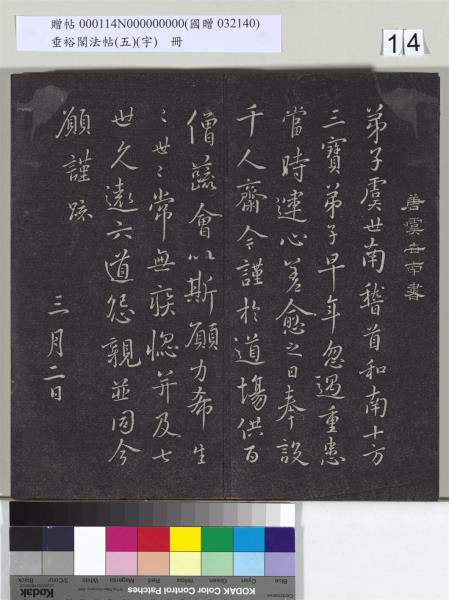 贈帖 000114N000000000(國贈 032140)
垂裕閣法帖(五)(字) 冊
14
唐虞世南書
弟子虞世南稽首和南十方
三寶弟子早年忽遇重患
當時運心差愈之日奉設
千人齋今謹於道場供百
僧蔬會以斯願力希生
生世世常無疾惱并及七
世久遠六道怨親並同今
願謹疏
三月二日
Blue
Cyan
Green
Yellow
Red
Magenta
White
3/Color
Black
KODAK Color Control Patches
Kodak